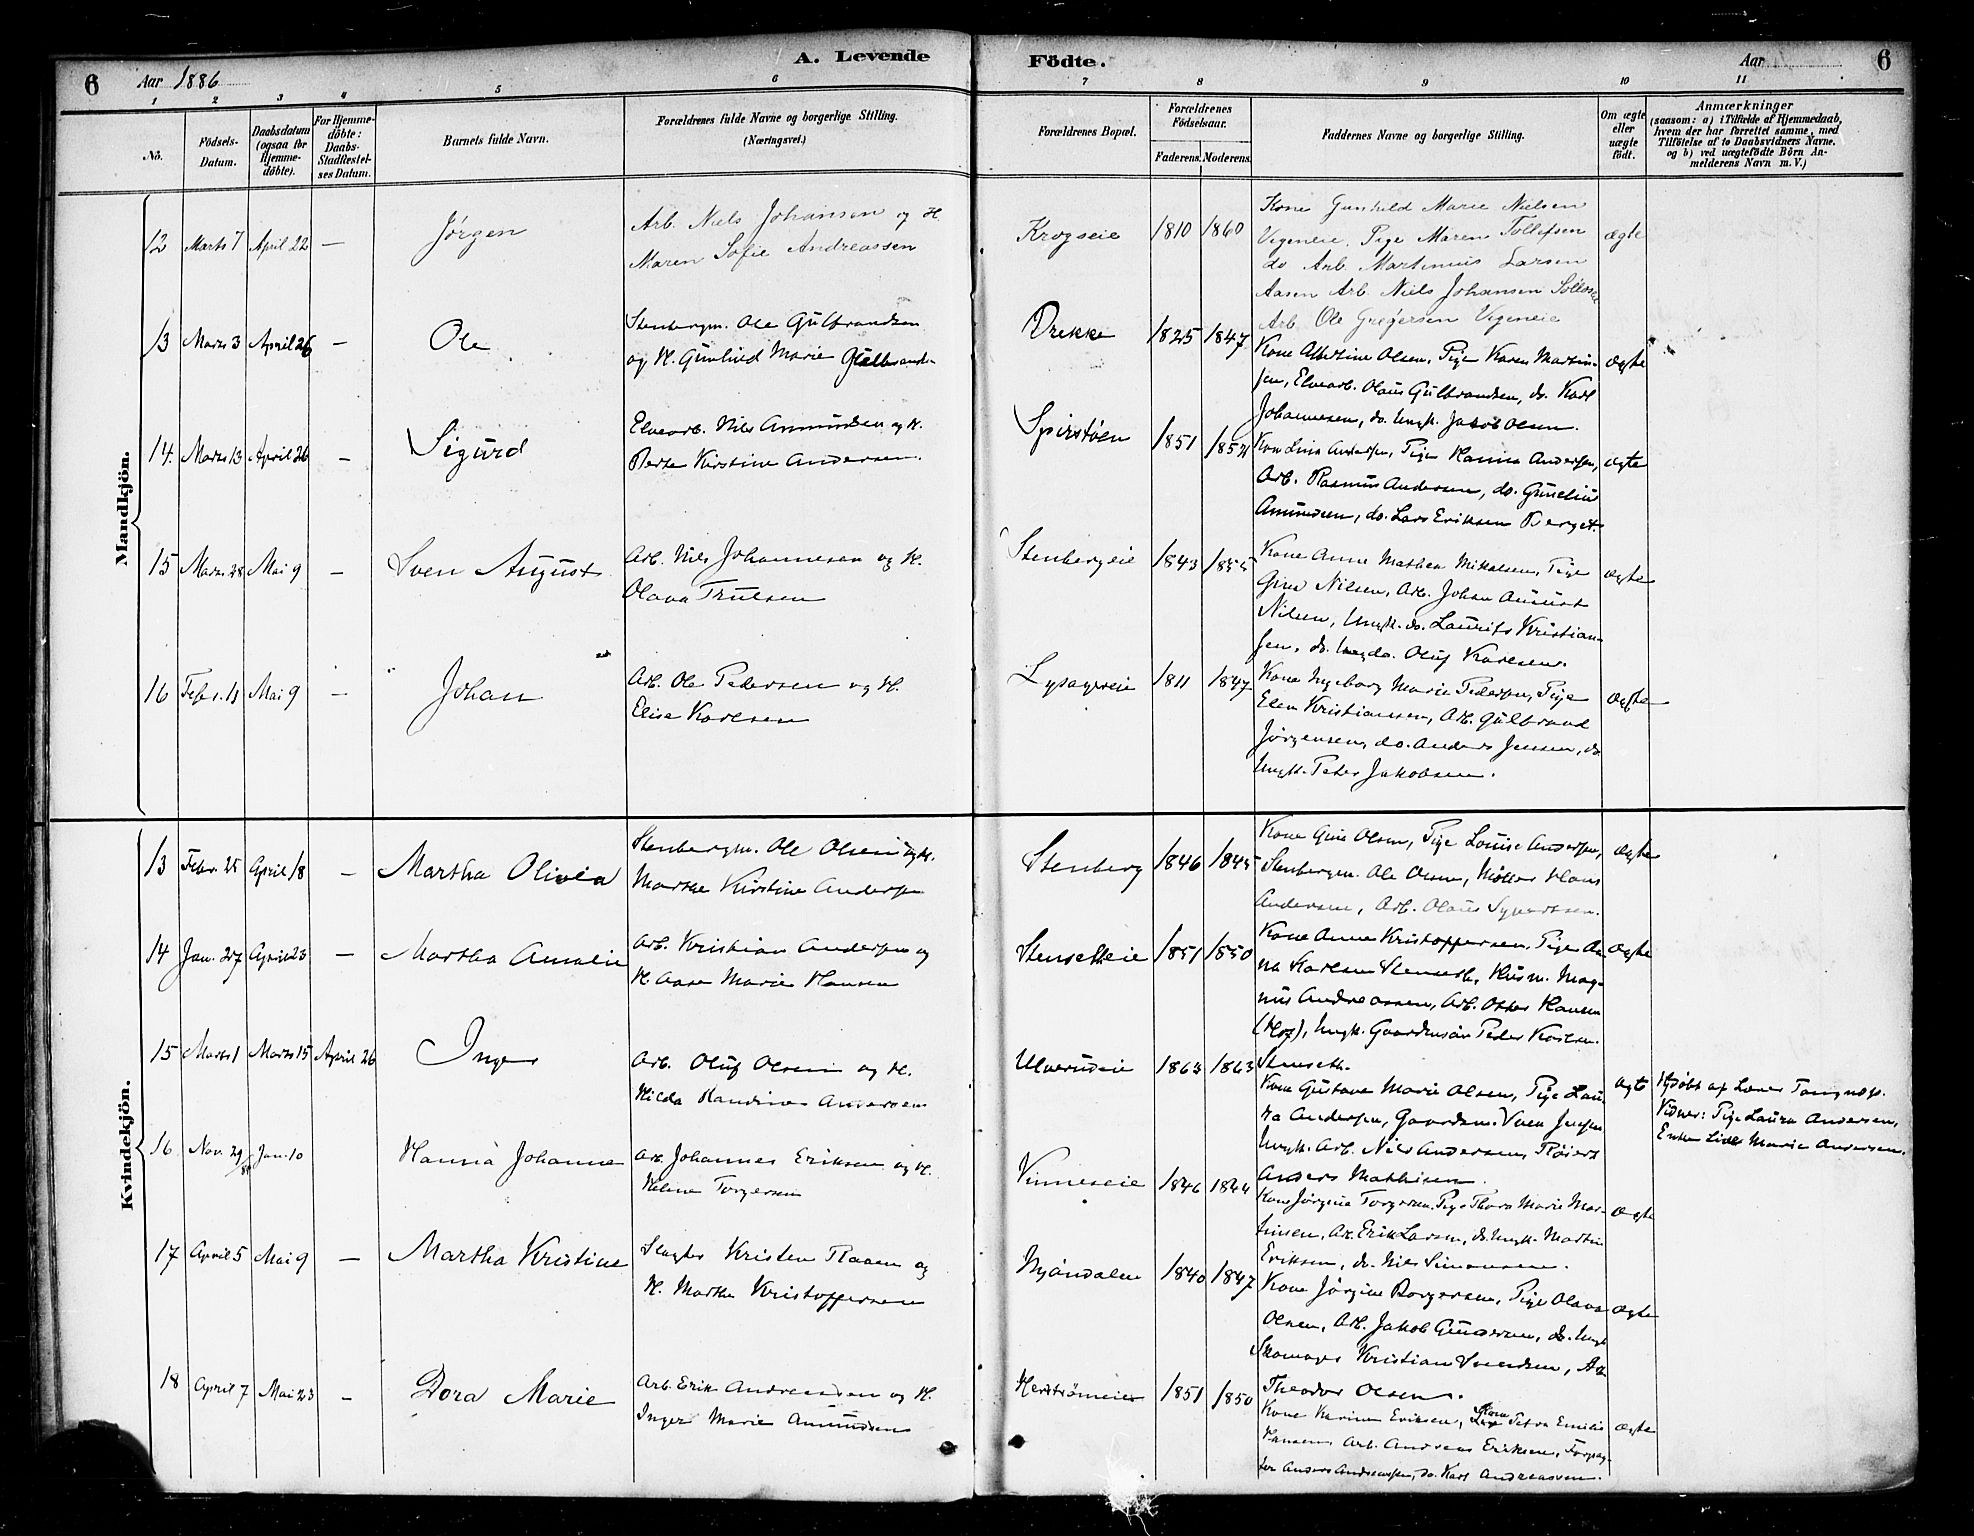 6 Aar 1886 A. Levende Fødte. Aar 6
1 2 3 4 5 6 7 8 9 10 11
No. Födsels-Datum. Daabsdatum (ogsaa for Hjemme-döbte). For Hjemme-döbte: Daabs-Stadfæstel-ses Datum. Barnets fulde Navn. Forældrenes fulde Navne og borgerlige Stilling. (Næringsvei.) Forældrenes Bopæl. Forældrenes Födselsaar. Faderens. Moderens. Faddernes Navne og borgerlige Stilling. Om ægte eller uægte födt. Anmærkninger (saasom: a) i Tilfælde af Hjemmedaab, hvem der har forrettet samme, med Tilföielse af to Daabsvidners Navne. og b) ved uægtefödte Börn An-melderens Navn m. V.)
Mandkjön.
12 Marts 7 April 22 — Jörgen
Arb. Niels Johansen og H.
Maren Sofie Andreassen
Krogseie 1810 1860
Kone Gunhild Marie Nielsen
Vegeneie. Pige Maren Tollefsen
do Arb. Martinius Larsen
Aasen Arb. Niels Johansen
Arb. Ole Gregersen Vegeneie
ægte
13 Marts 3 April 26 — Ole
Stenbergm. Ole Gulbrandsen
og H. Gunhild Marie Gulbrands.
Vrekke 1825 1847
Kone Albertine Olsen, Pige Karen Martin-
sen, Elvearb. Olaus Gulbrandsen, do. Karl
Johannesen, do. Ungk. Jakob Olsen.
ægte
14. Marts 13 April 26 — Sigurd
Elvearb. Nils Amundsen og H.
Berte Kirstine Andersen.
Spirstöen 1851 1854
Kone Lina Andersen, Pige Hanna Andersen,
Arb. Rasmus Andersen, do. Gunelius
Amundsen, do. Lars Eriksen Berget.
ægte
15 Marts 28 Mai 9 — Sven August
Arb. Nils Johannesen og H.
Olava Trulsen
Stenbergeie 1843 1855
Kone Anne Mathea Mikkelsen, Pige
Gina Nilsen, Arb. Johan August
Nilsen, Ungk. do. Laurits Kristian-
sen, do. Ungdo. Oluf Karlsen.
ægte
16 Febr. 18 Mai 9 — Johan
Arb. Ole Pedersen og H.
Elise Karlsen
Lysagereie 1811 1847
Kone Ingeborg Marie Pedersen, Pige
Elen Kristiansen, Arb. Gulbrand
Jörgensen, do. Anders Jensen, do.
Ungk. Peter Jakobsen.
ægte
Kvindekjön.
13 Febr. 25 April 18 — Martha Olivia
Stenbergm. Ole Olsen og H.
Marthe Kirstine Andersen
Stenberg 1846 1845
Kone Gine Olsen, Pige Louise Andersen,
Stenbergm. Ole Olsen, Möller Hans
Andersen, Arb. Olaus Syvertsen.
ægte
14 Jan. 27 April 23 — Martha Amalie
Arb. Kristian Andersen og
H. Aase Marie Hansen
Stensetheie 1851 1850
Kone Anne Kristoffersen, Pige An-
na Karlsen Stenseth, Husm. Mag-
nus Andreassen, Arb. Otter Hansen
Ungk. Gaardmsön Peder Karlsen
Stenseth.
ægte
15 Marts 1 Marts 15 April 26 Inga
Arb. Oluf Olsen og H.
Hilda Randine Andersen
Ulverudeie 1863 1863
Kone Gustava Marie Olsen, Pige Lau-
ra Andersen, Gaardm. Sven Jensen
Ungk. Arb. Nils Andersen, Röiert
Anders Mathisen.
ægte
Hjdöbt af Lærer Tangnæs.
Vidner: Pige Laura Andersen,
Enke Lise Marie Andersen.
16 Nov. 29/85 Jan. 10 Hanna Johanne
Arb. Johannes Eriksen og H.
Helene Torgersen
Vinneseie 1846 1844
Kone Jörgine Torgersen, Pige Thora Marie Mar-
tinsen, Arb. Erik Larsen, do. Ungk. Martin
Eriksen, do. Nils Simensen.
ægte
17 April 5 Mai 9 — Martha Kristine
Slagter Kristen Raaen og
H. Marthe Kristoffersen
Mjöndalen 1840 1847
Kone Jörgine Borgersen, Pige Olava
Olsen, Arb. Jakob Gundersen, do. Ungk.
Skomager Kristian Svendsen, Arb.
Theodor Olsen.
ægte
18 April 7 Mai 23 — Dora Marie
Arb. Erik Andreassen og H.
Inger Marie Amundsen
Herstrømeie 1851 1850
Kone Karine Eriksen, Kone Petra Emilie
Hansen Arb. Andreas Eriksen, Forpag-
ter Anders Andreassen, do. Karl Andreassen.
ægte